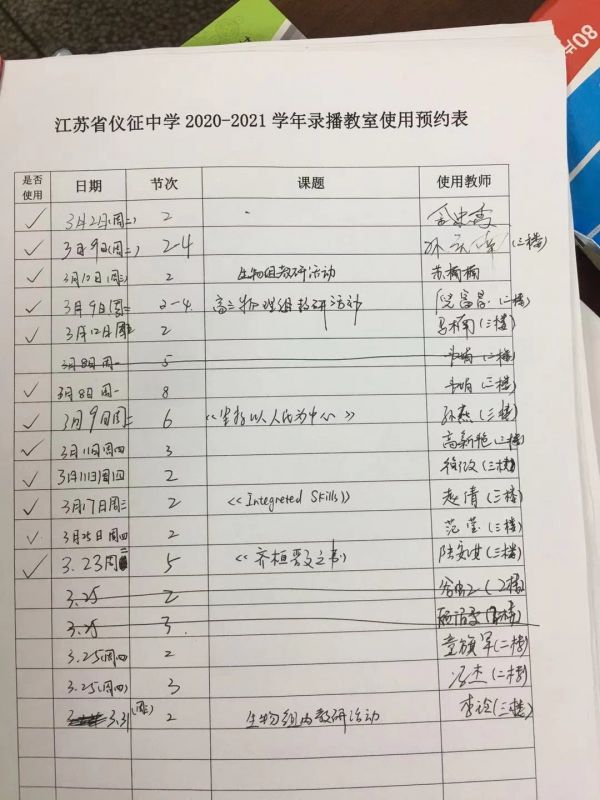 80片
江苏省仪征中学 2020-2021 学年录播教室使用预约表
是否使用 日期 节次 课题 使用教师
✓ 3月2日(周二) 2
✓ 3月9日(周二) 2-4 (三楼)
✓ 3月10日(周三) 2 生物组教研活动 苏楠楠
✓ 3月9日(周二) 2-4 高三物理组教研活动 倪富晨(二楼)
✓ 3月12日 周五 2 马楠(三楼)
3月8日 周一 5 (三楼)
✓ 3月8日 周一 8 (三楼)
✓ 3月9日 周二 6 《坚持以人民为中心》 孙燕(三楼)
✓ 3月11日周四 3 高新艳(三楼)
✓ 3月11日周四 2 (三楼)
✓ 3月17日周三 2 《Integreted Skills》 赵倩(三楼)
✓ 3月25日周四 2 范莹(三楼)
✓ 3.23周二 5 《齐桓晋文之事》 陆安琪(三楼)
3.25 2 (2楼)
3.25 3
3.25(周四) 2 童旗军(二楼)
3.25(周四) 3 冯杰(二楼)
3.31(周三) 2 生物组内教研活动 (三楼)